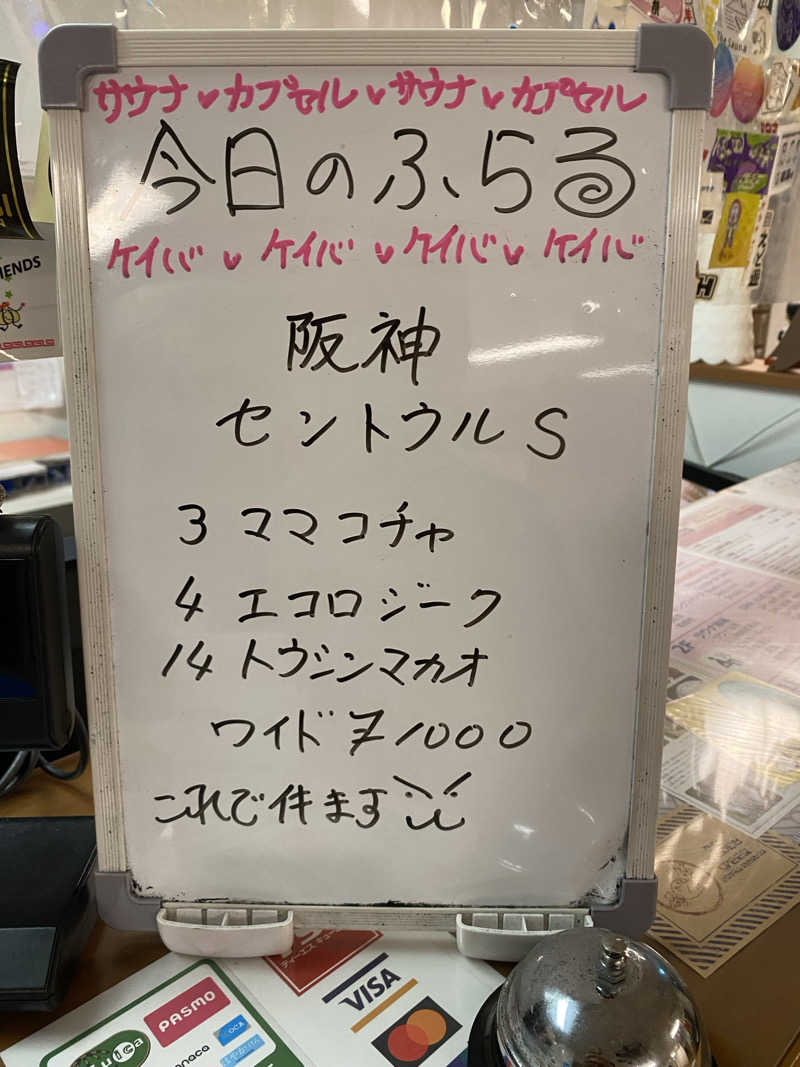 サウナ♥カプセル♥サウナ♥カプセル
今日のふらる
ケイバ♥ケイバ♥ケイバ♥ケイバ
阪神
セントウルS
3 ママコチャ
4 エコロジーク
14 トウシンマカオ
ワイド ¥1000
これで件ます
IENDS
The Sauna
ティーエスキュー
VISA
PASMO
Suica
nanaco